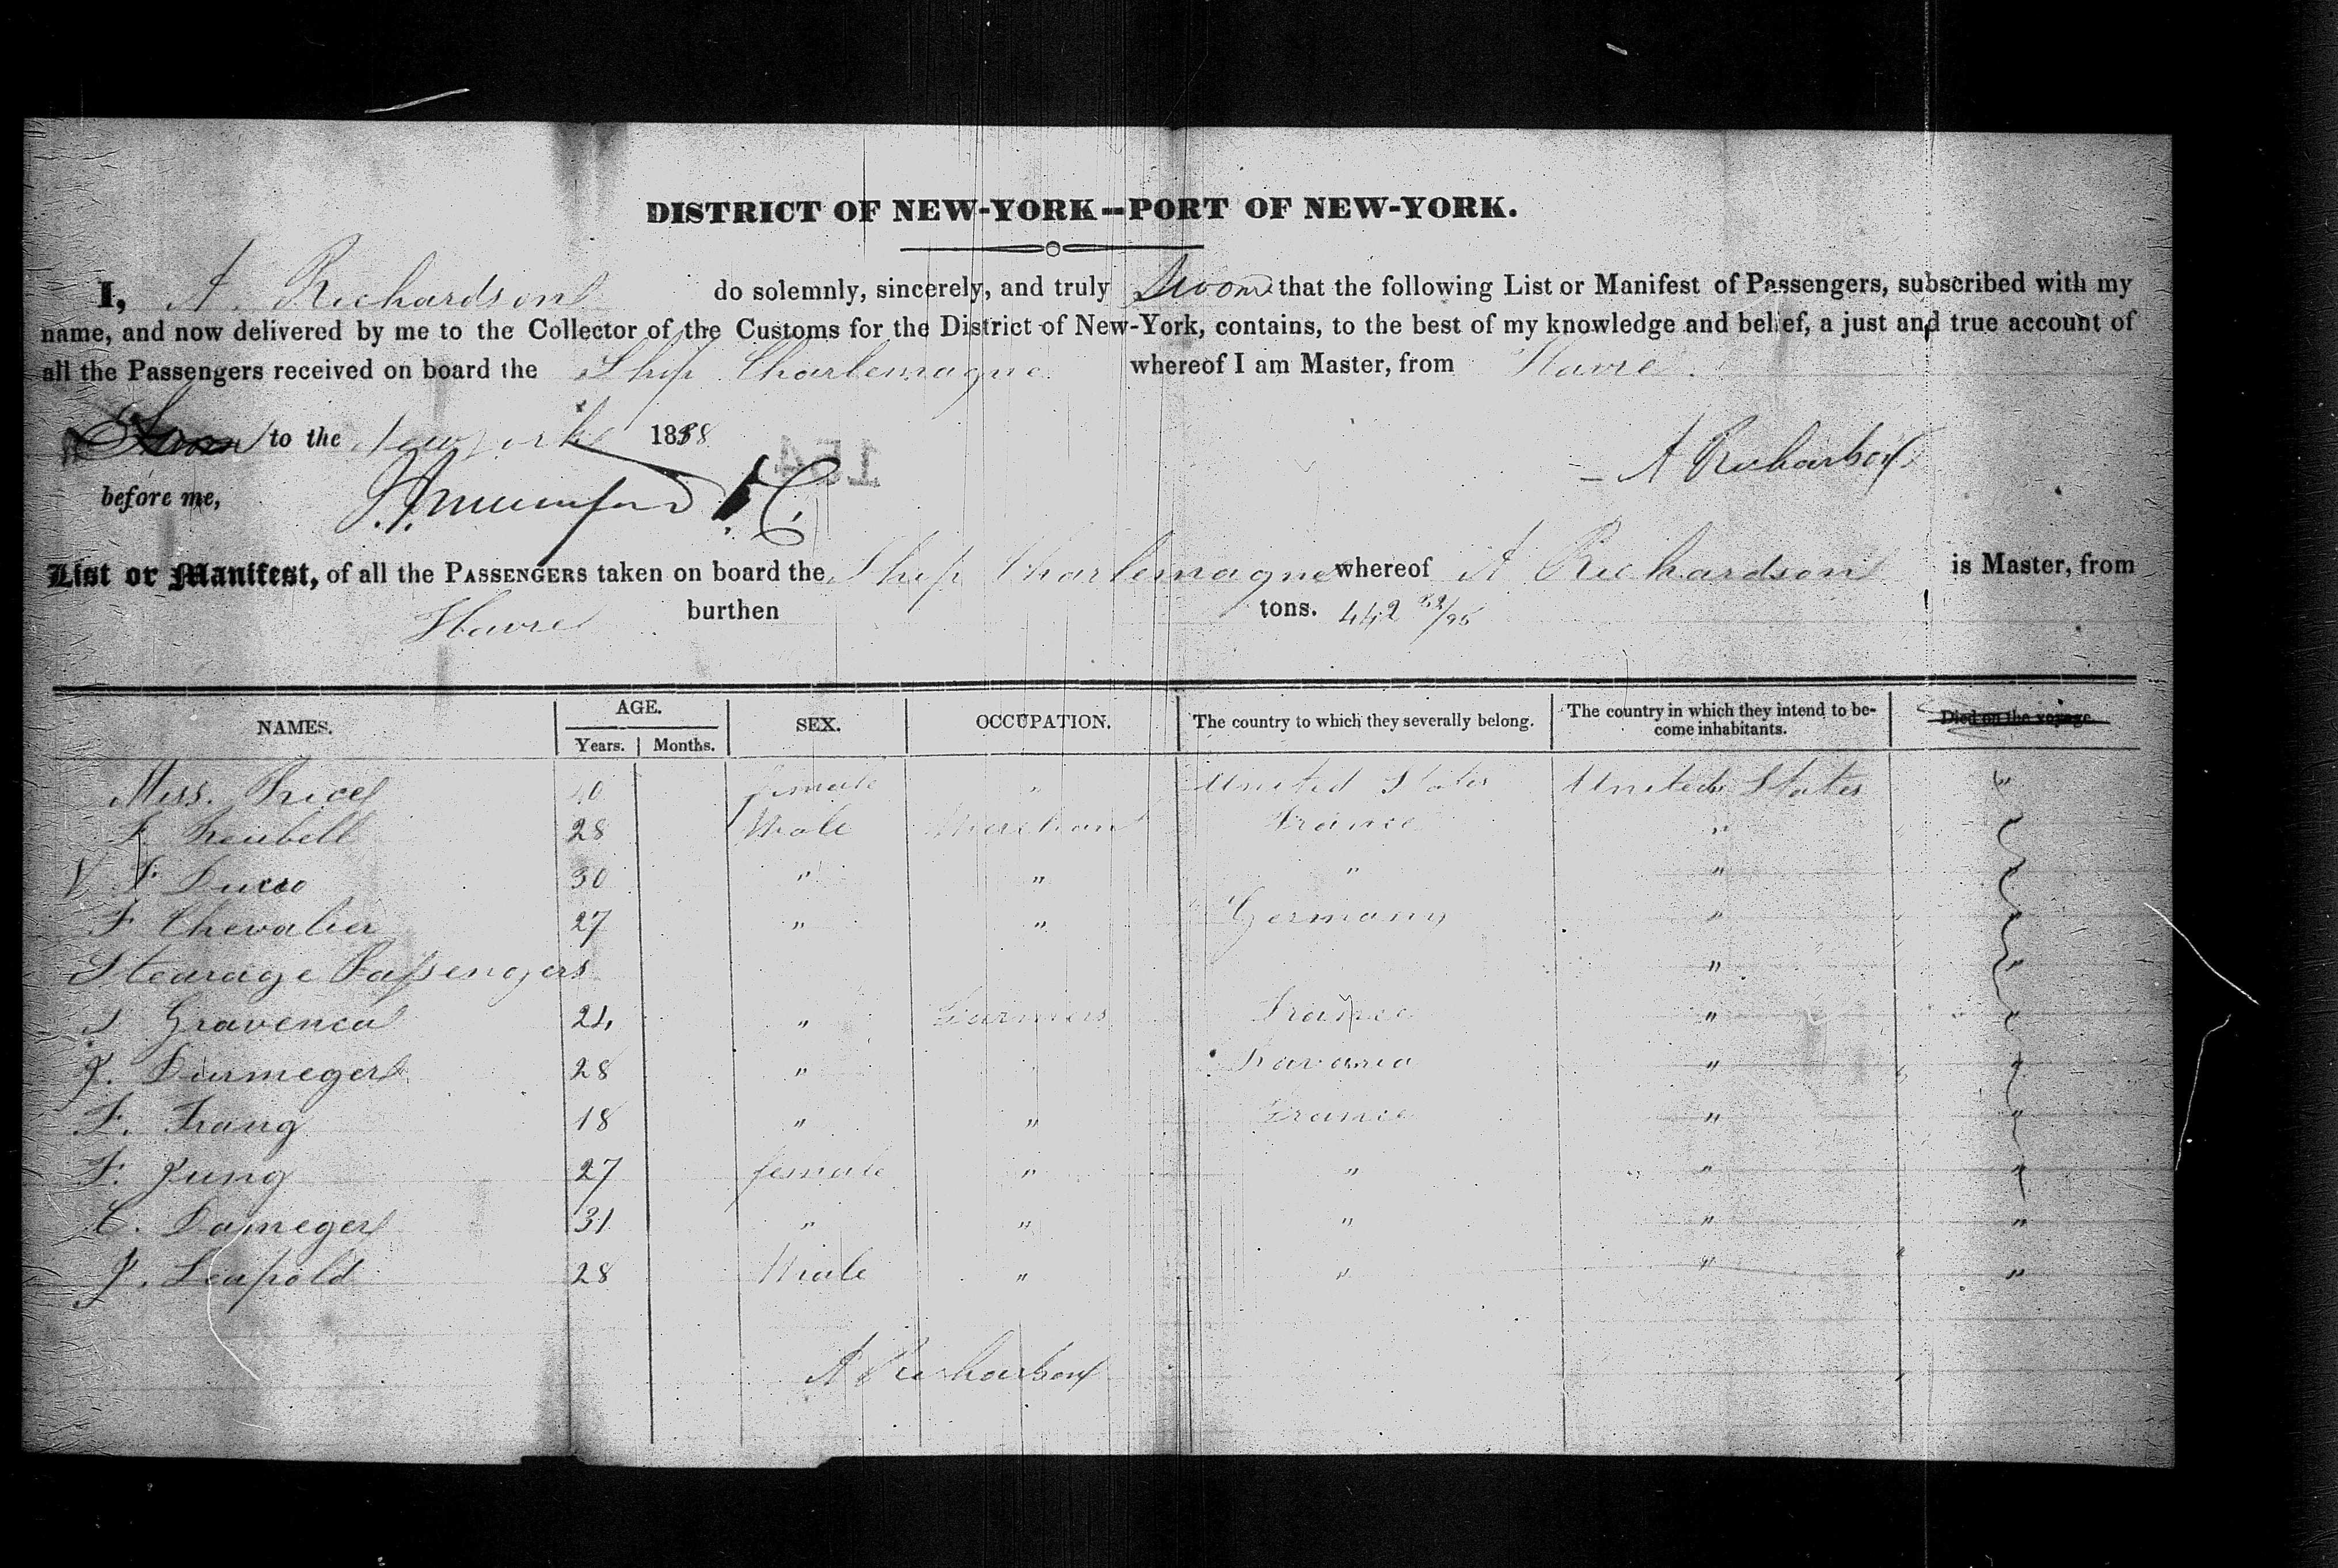 DISTRICT OF NEW-YORK--PORT OF NEW-YORK.
I, A. Richardson do solemnly, sincerely, and truly Swear that the following List or Manifest of Passengers, subscribed with my
name, and now delivered by me to the Collector of the Customs for the District of New-York, contains, to the best of my knowledge and belief, a just and true account of
all the Passengers received on board the Ship Charlemagne whereof I am Master, from Havre.
Sworn to the New York 1838
154
A Richardson
before me,
List or Manifest, of all the PASSENGERS taken on board the Ship Charlemagne whereof A Richardson is Master, from
Havre burthen tons. 442 82/95
NAMES. AGE. Years. Months. SEX. OCCUPATION. The country to which they severally belong. The country in which they intend to become inhabitants. Died on the voyage.
Miss. Price 40 female " United States United States "
F. Reubell 28 Male Merchant France "
30 " " " "
F Chevalier 27 " " Germany " "
Stearage Passengers " "
Gravencal 24 " Farmers France "
J. Durmeger 28 " Bavaria "
F. Frang 18 " " France " "
F. Jung 27 female " " " "
C. Dameger 31 " " " " "
J. Leapold 28 Male " " " "
A Richardson